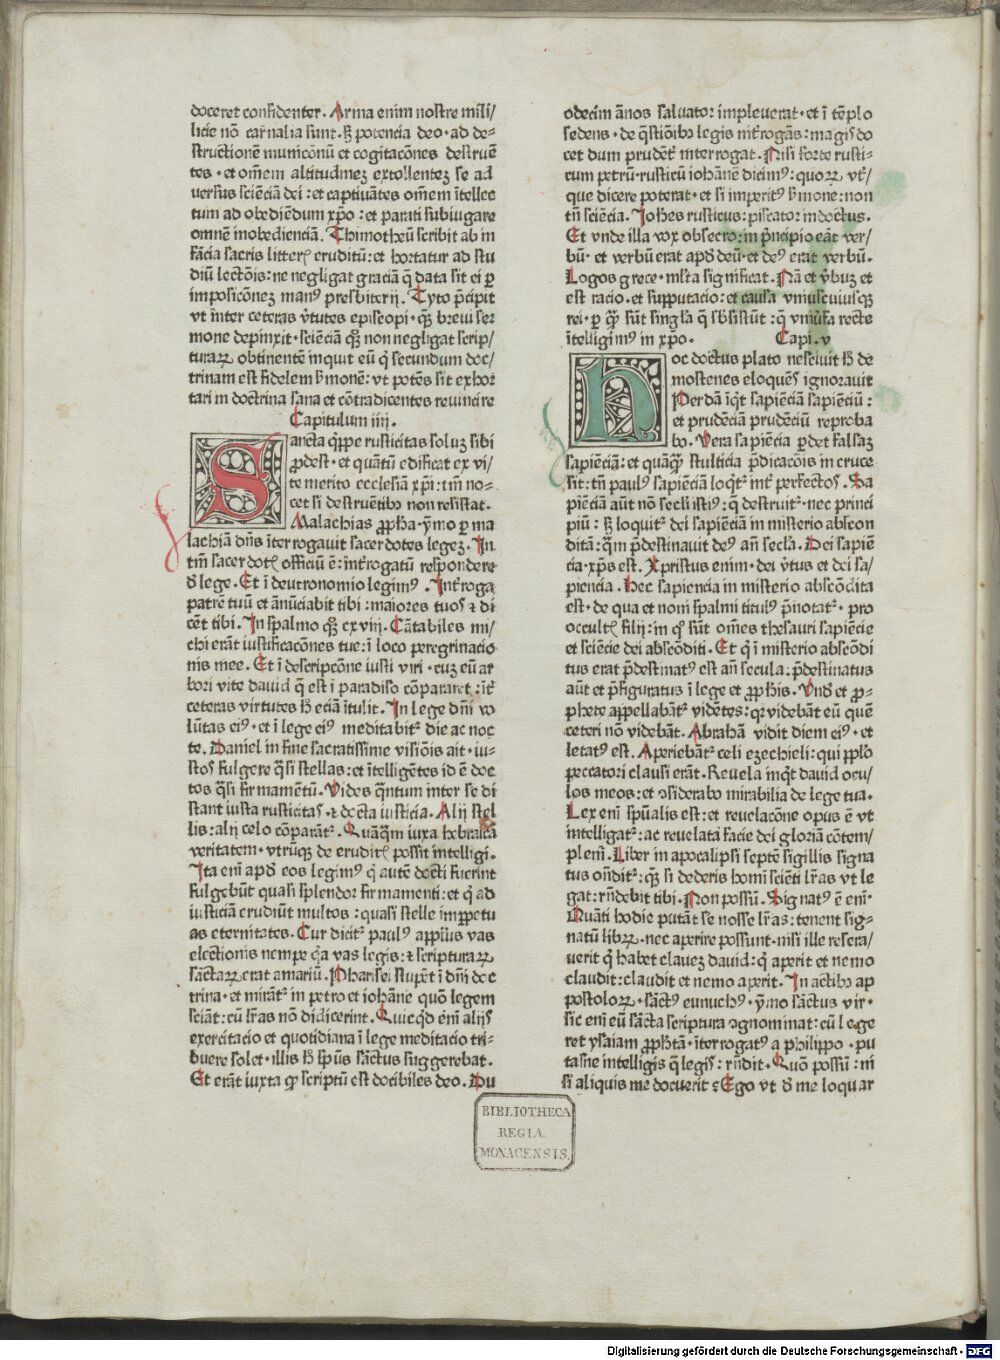 doceret confidenter. Arma enim nostre mili/
licie nō carnalia sunt. sꝫ potencia deo. ad de⸗
structionē municōnū et cogitacōnes destruē
tes. et om̄em altitudineꝫ extollenteꝫ se ad
versus sciēciā dei: et captiuātes om̄em ītellec
tum ad obediēdum xp̄o: et parati subiugare
omnē inobedienciā. Thimotheū scribit ab in
fācia sacris litterꝭ eruditū: et hortatur ad stu
diū lectōis: ne negligat graciā q̄ data sit ei ꝑ
imposicōneꝫ manꝰ presbiterij. Tyto p̄cipit
vt inter ceteras v̓tutes episcopi. q̄ꝫ breui ser
mone depinxit. sciēciā qꝫ non negligat scrip⸗
turaꝝ obtinentē inquit eū q̓ secundum doc⸗
trinam est fidelem s̓monē: vt potēs sit exhor
tari in doctrina sana et cōtradicentes reuincire
Capitulum iiij.
Sancta qͥppe rusticitas soluꝫ sibi
ꝓdest. et quātū edificat ex vi⸗
te merito ecclesiā xp̄i: tm̄ no⸗
cet si destruētibꝰ non resistat.
Malachias ꝓph̄a. ymo ꝑ ma
lachiā dn̄s īterrogauit sacerdotes legeꝫ. In
tm̄ sacerdotꝭ officiū ē: int̓rogatū respondere
d̓ lege. Et ī deutronomio legimꝰ. Int̓roga
patrē tuū et ān̄uciabit tibi: maiores tuos ⁊ di
cēt tibi. In spalmo qꝫ cxviij. Cātabiles mi/
chi erāt iustificacōnes tue: ī loco peregrinacio
nis mee. Et ī descripcōne iusti viri. cuꝫ eū ar
bori vite dauid q̄ est ī paradiso cōpararet: īt̓
ceteras virtutes h̄ eciā ītulit. In lege dn̄i vo
lūtas eiꝰ. et ī lege eiꝰ meditabitᷣ die ac noc
te. Daniel in fine sacratissime visiōis ait. iu⸗
stos fulgere qͣsi stellas: et ītelligētes id ē doc
tos qͣsi firmamētū. Vides qͣntum inter se di
stant iusta rusticitas. ⁊ docta iusticia. Alij stel
lis: alij celo cōparātᷣ. Quāqͣm iuxa hebraicā
veritatem. vtrūqꝫ de eruditꝭ possit intelligi.
Ita eni apd̓ eos legimꝰ q̓ autē docti fuerint
fulgebūt quasi splendor firmamenti: et q̓ ad
iusticiā erudiūt multos: quasi stelle imꝑpetu
as eternitates. Cur dicitᷣ paulꝰ applūs vas
electionis nempe qͥa vas legis: ⁊ scripturaꝝ
sāctaꝝ erat amariū. Pharisei stupēt ī dn̄i doc
trina. et mirātᷣ in petro et iohāne quō legem
sciāt: cū lr̄as nō didicerint. Quicqͥd enī alijs
exercitacio et quotidiana ī lege meditacio tri⸗
buere solet. illis h̄ sp̄us sāctus suggerebat.
Et erāt iuxta qͦ scriptū est docibiles deo. Du
odecim ānos saluator impleuerat. et ī tēplo
sedens. de q̄stiōibꝰ legis int̓rogās: magis do
cet dum prudēt̓ interrogat. Nisi forte rusti⸗
cum petrū. rusticū iohānē dicimꝰ: quoꝝ vt̓/
que dicere poterat. et si imperitꝰ s̓mone: non
tn̄ sciēcia. Joh̄es rusticus: piscator indoctus.
Et vnde illa vox obsecro: in p̓ncipio eāt ver/
bū. et verbū erat apd̓ deū. et deꝰ erat verbū.
Logos grece. ml̓ta significat. Nā et v̓buꝫ et
est racio. et supputacio: et causa vniuscuiusqꝫ
rei. ꝑ qͣ sūt singl̓a q̄ sb̓sistūt: q̄ vniu̓sa recte
ītelligimꝰ in xp̄o. Capi. v
Hoc doctus plato nesciuit h̄ de
mostenes eloquēs ignorauit
Perdā īqͭ sapiēciā sapiēciū:
et prudēciā prudēciū reproba
bo. Vera sapiēcia ꝑdet falsaꝫ
sapiēciā: et quāqͣ stulticia p̄dicacōis in cruce
sit: tn̄ paulꝰ sapiēciā loqͭᷣ int̓ perfectos. Sa
piēciā aūt nō secli istiꝰ: q̄ destruitᷣ. nec princi
piū: sꝫ loquitᷣ dei sapiēciā in misterio abscon
ditā: qͣm p̄destinauit deꝰ an̄ secl̓a. Dei sapiē
cia. xp̄s est. Xpristus enim. dei v̓tus et dei sa/
piencia. Hec sapiencia in misterio abscōdita
est. de qua et noni spalmi titulꝰ p̄notatᷣ. pro
occultꝭ filij: in qͦ sūt om̄es thesauri sapiēcie
et sciēcie dei abscōditi. Et q̓ ī misterio abscōdi
tus erat p̄destinatꝰ est an̄ secula: p̄destinatus
aūt et p̄figuratus ī lege et ꝓph̄is. Vnd̓ et ꝓ⸗
phete appellabātᷣ vidētes: qꝛ videbāt eū quē
ceteri nō videbāt. Abrahā vidit diem eiꝰ. et
letatꝰ est. Aperiebātᷣ celi ezechieli: qui ppl̓o
peccatori clausi erāt. Reuela inqͭ dauid ocu/
los meos: et ꝯsiderabo mirabilia de lege tua.
Lex enī sp̄ualis est: et reuelacōne opus ē vt
intelligatᷣ: ac reuelata facie dei gloriā cōtem/
plem̄. Liber in apocalipsi septē sigillis signa
tus on̄ditᷣ: q̄ꝫ si dederis homī sciēti lr̄as vt le
gat: rn̄debit tibi. Non possū. Signatꝰ ē enī.
Quāti hodie putāt se nosse lr̄as: tenent sig⸗
natū libꝝ. nec aperire possunt. nisi ille resera/
uerit q̓ habet claueꝫ dauid: q̓ aperit et nemo
claudit: claudit et nemo aperit. In actibꝰ ap
postoloꝝ. sāctꝰ eunuchꝰ. ymo sāctus vir.
sic enī eū sācta scriptura ꝯgnominat: cū lege
ret ysaiam ꝓph̄tā. īterrogatꝰ a philippo. pu
tasne intelligis q̄ legis: rn̄dit. Quō possū: ni
si aliquis me docuerit? Ego vt d̓ me loquar
BIBLIOTHECA
REGIA
MONACENSIS.
Digitalisierung gefördert durch die Deutsche Forschungsgemeinschaft - DFG